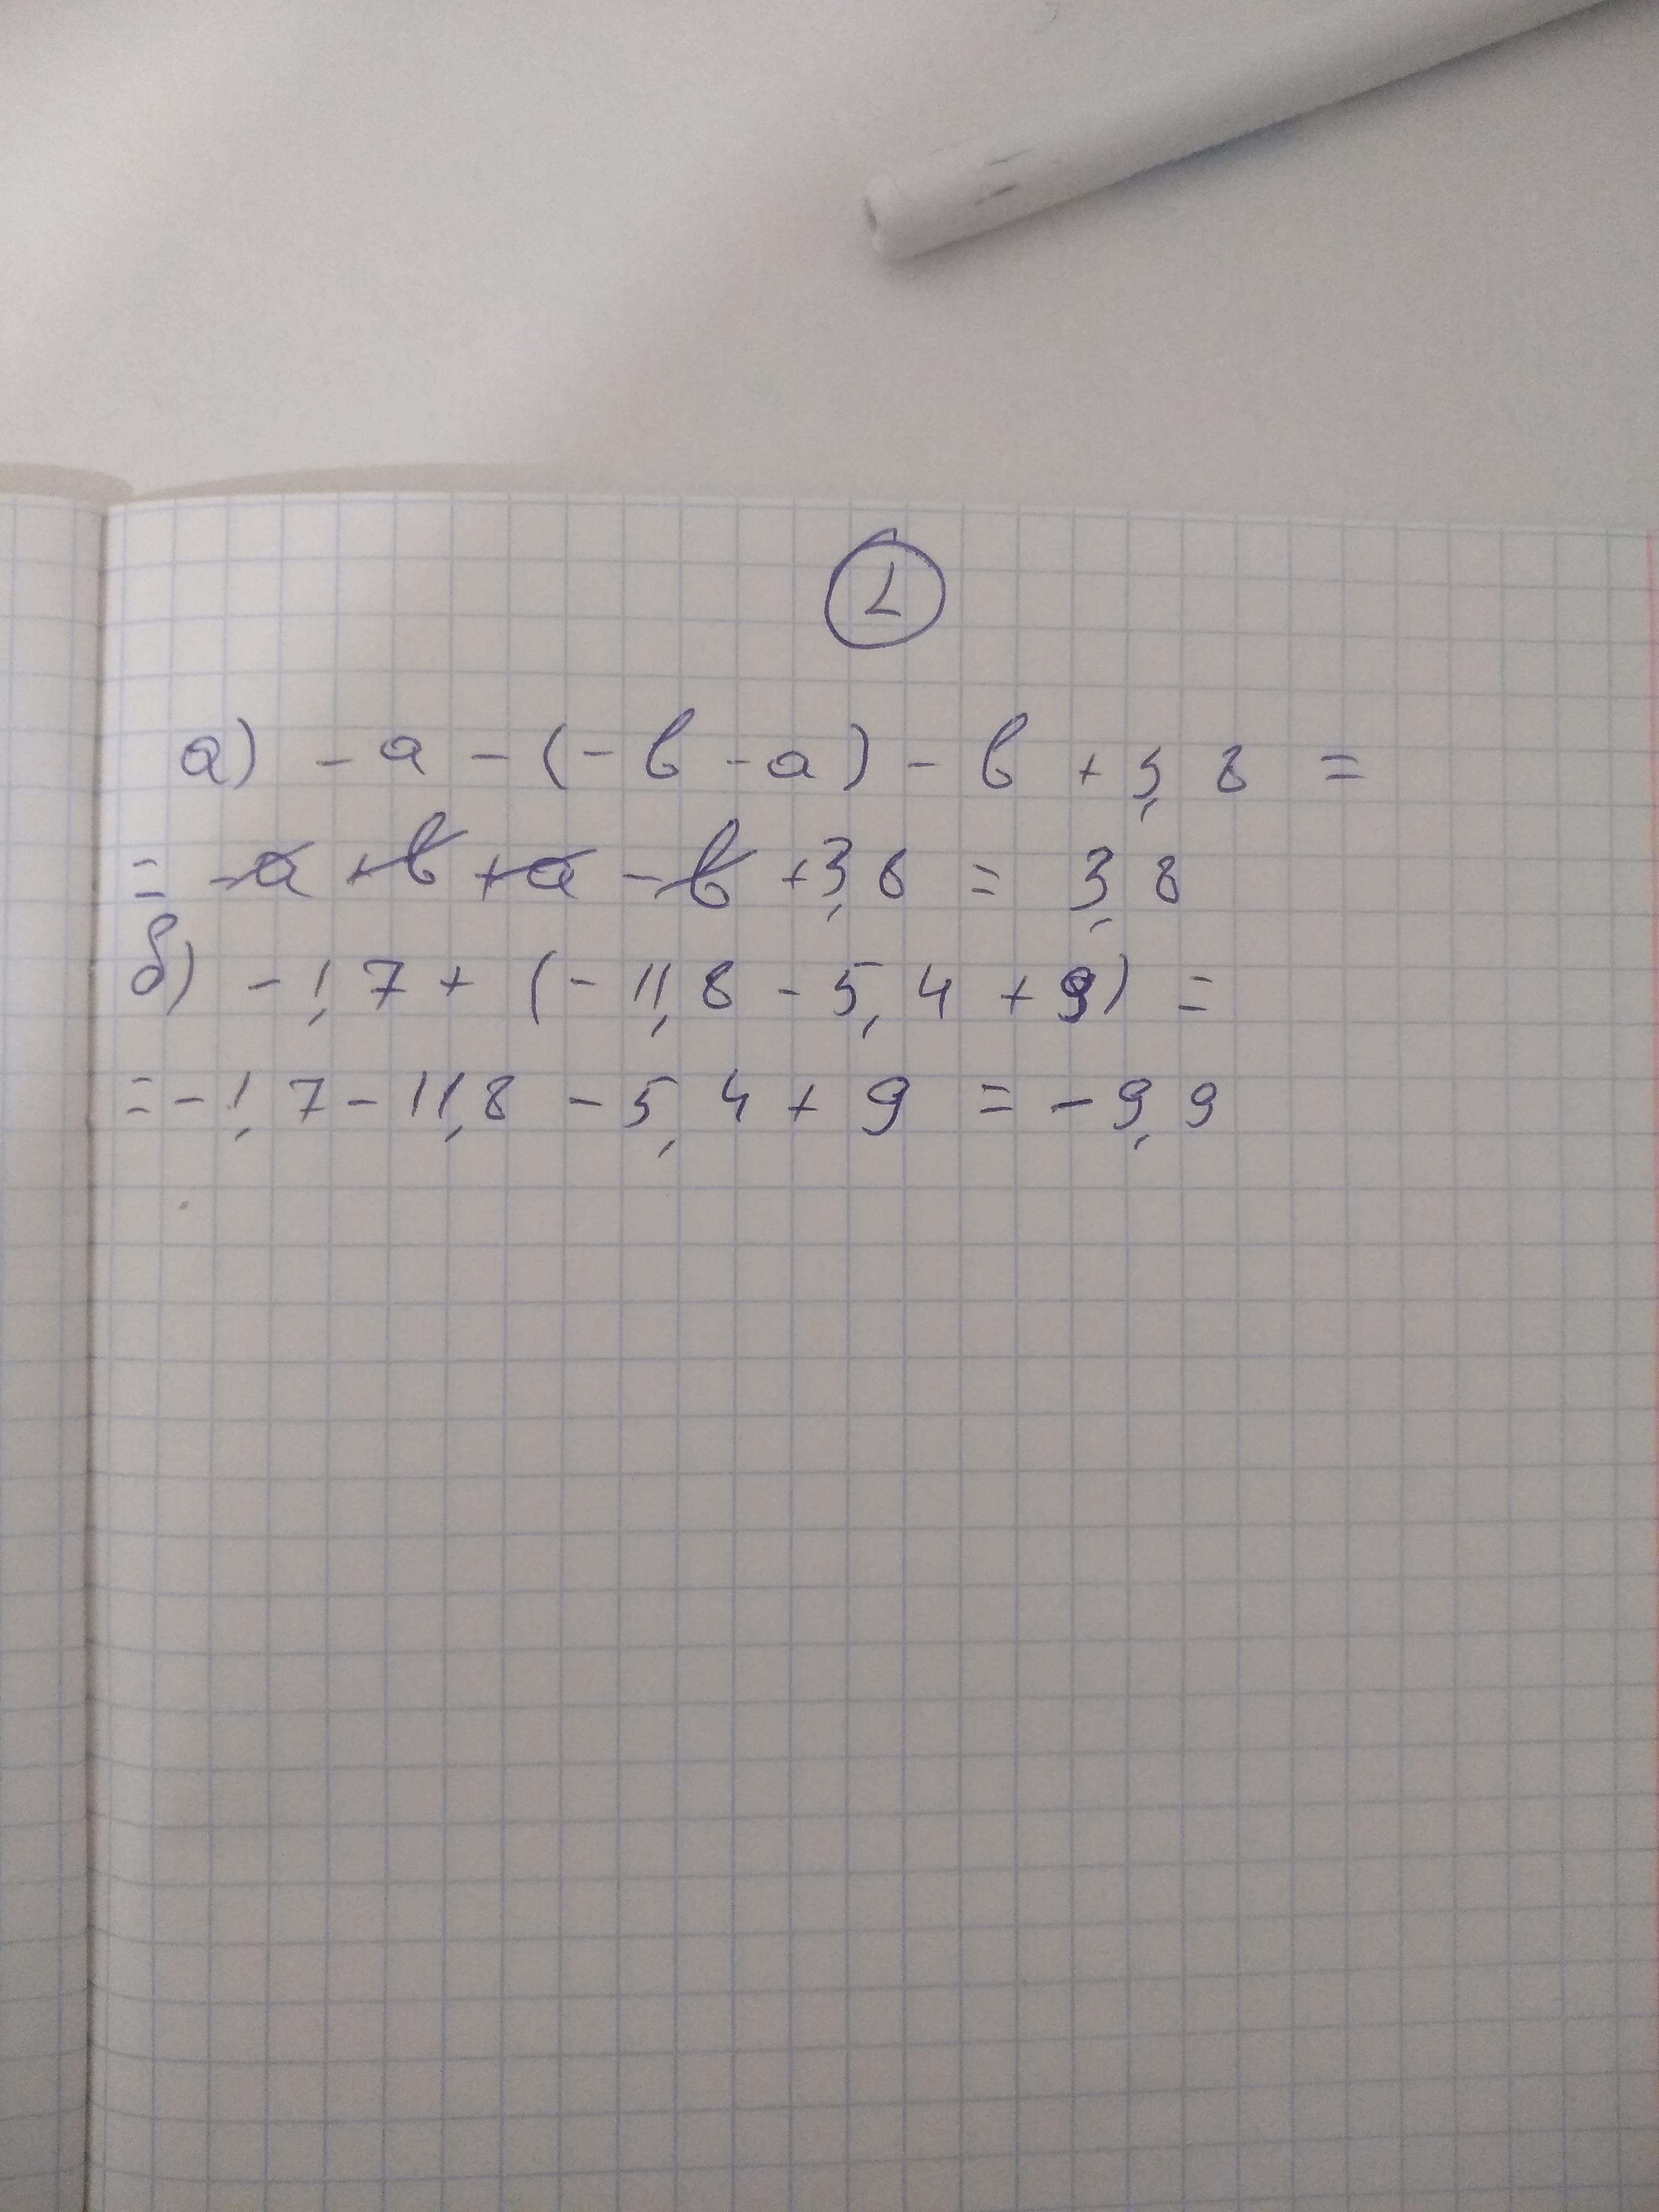 1
а) - а - (- в - а) - в + 3,8 =
= - а + в + а - в + 3,8 = 3,8
б) - 1,7 + (- 11,8 - 5,4 + 9) =
= - 1,7 - 11,8 - 5,4 + 9 = - 9,9